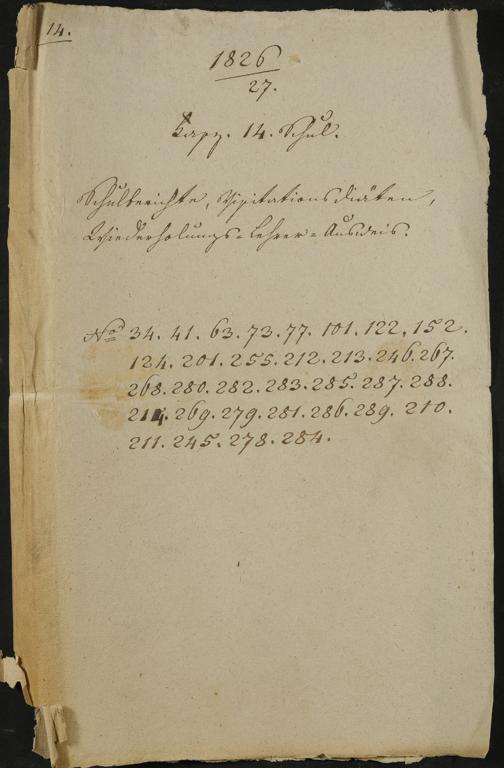 14.
1826
27.
Fasz. 14. Schul.
Schulberichte, Visitationsdiäten,
Wiederholungs=Lehrer=Ausweis.
No 34. 41. 63. 73. 77. 101. 122. 152.
124. 201. 255. 212. 213. 246. 267.
268. 280. 282. 283. 285. 287. 288.
214. 269. 279. 281. 286. 289. 210.
211. 245. 278. 284.